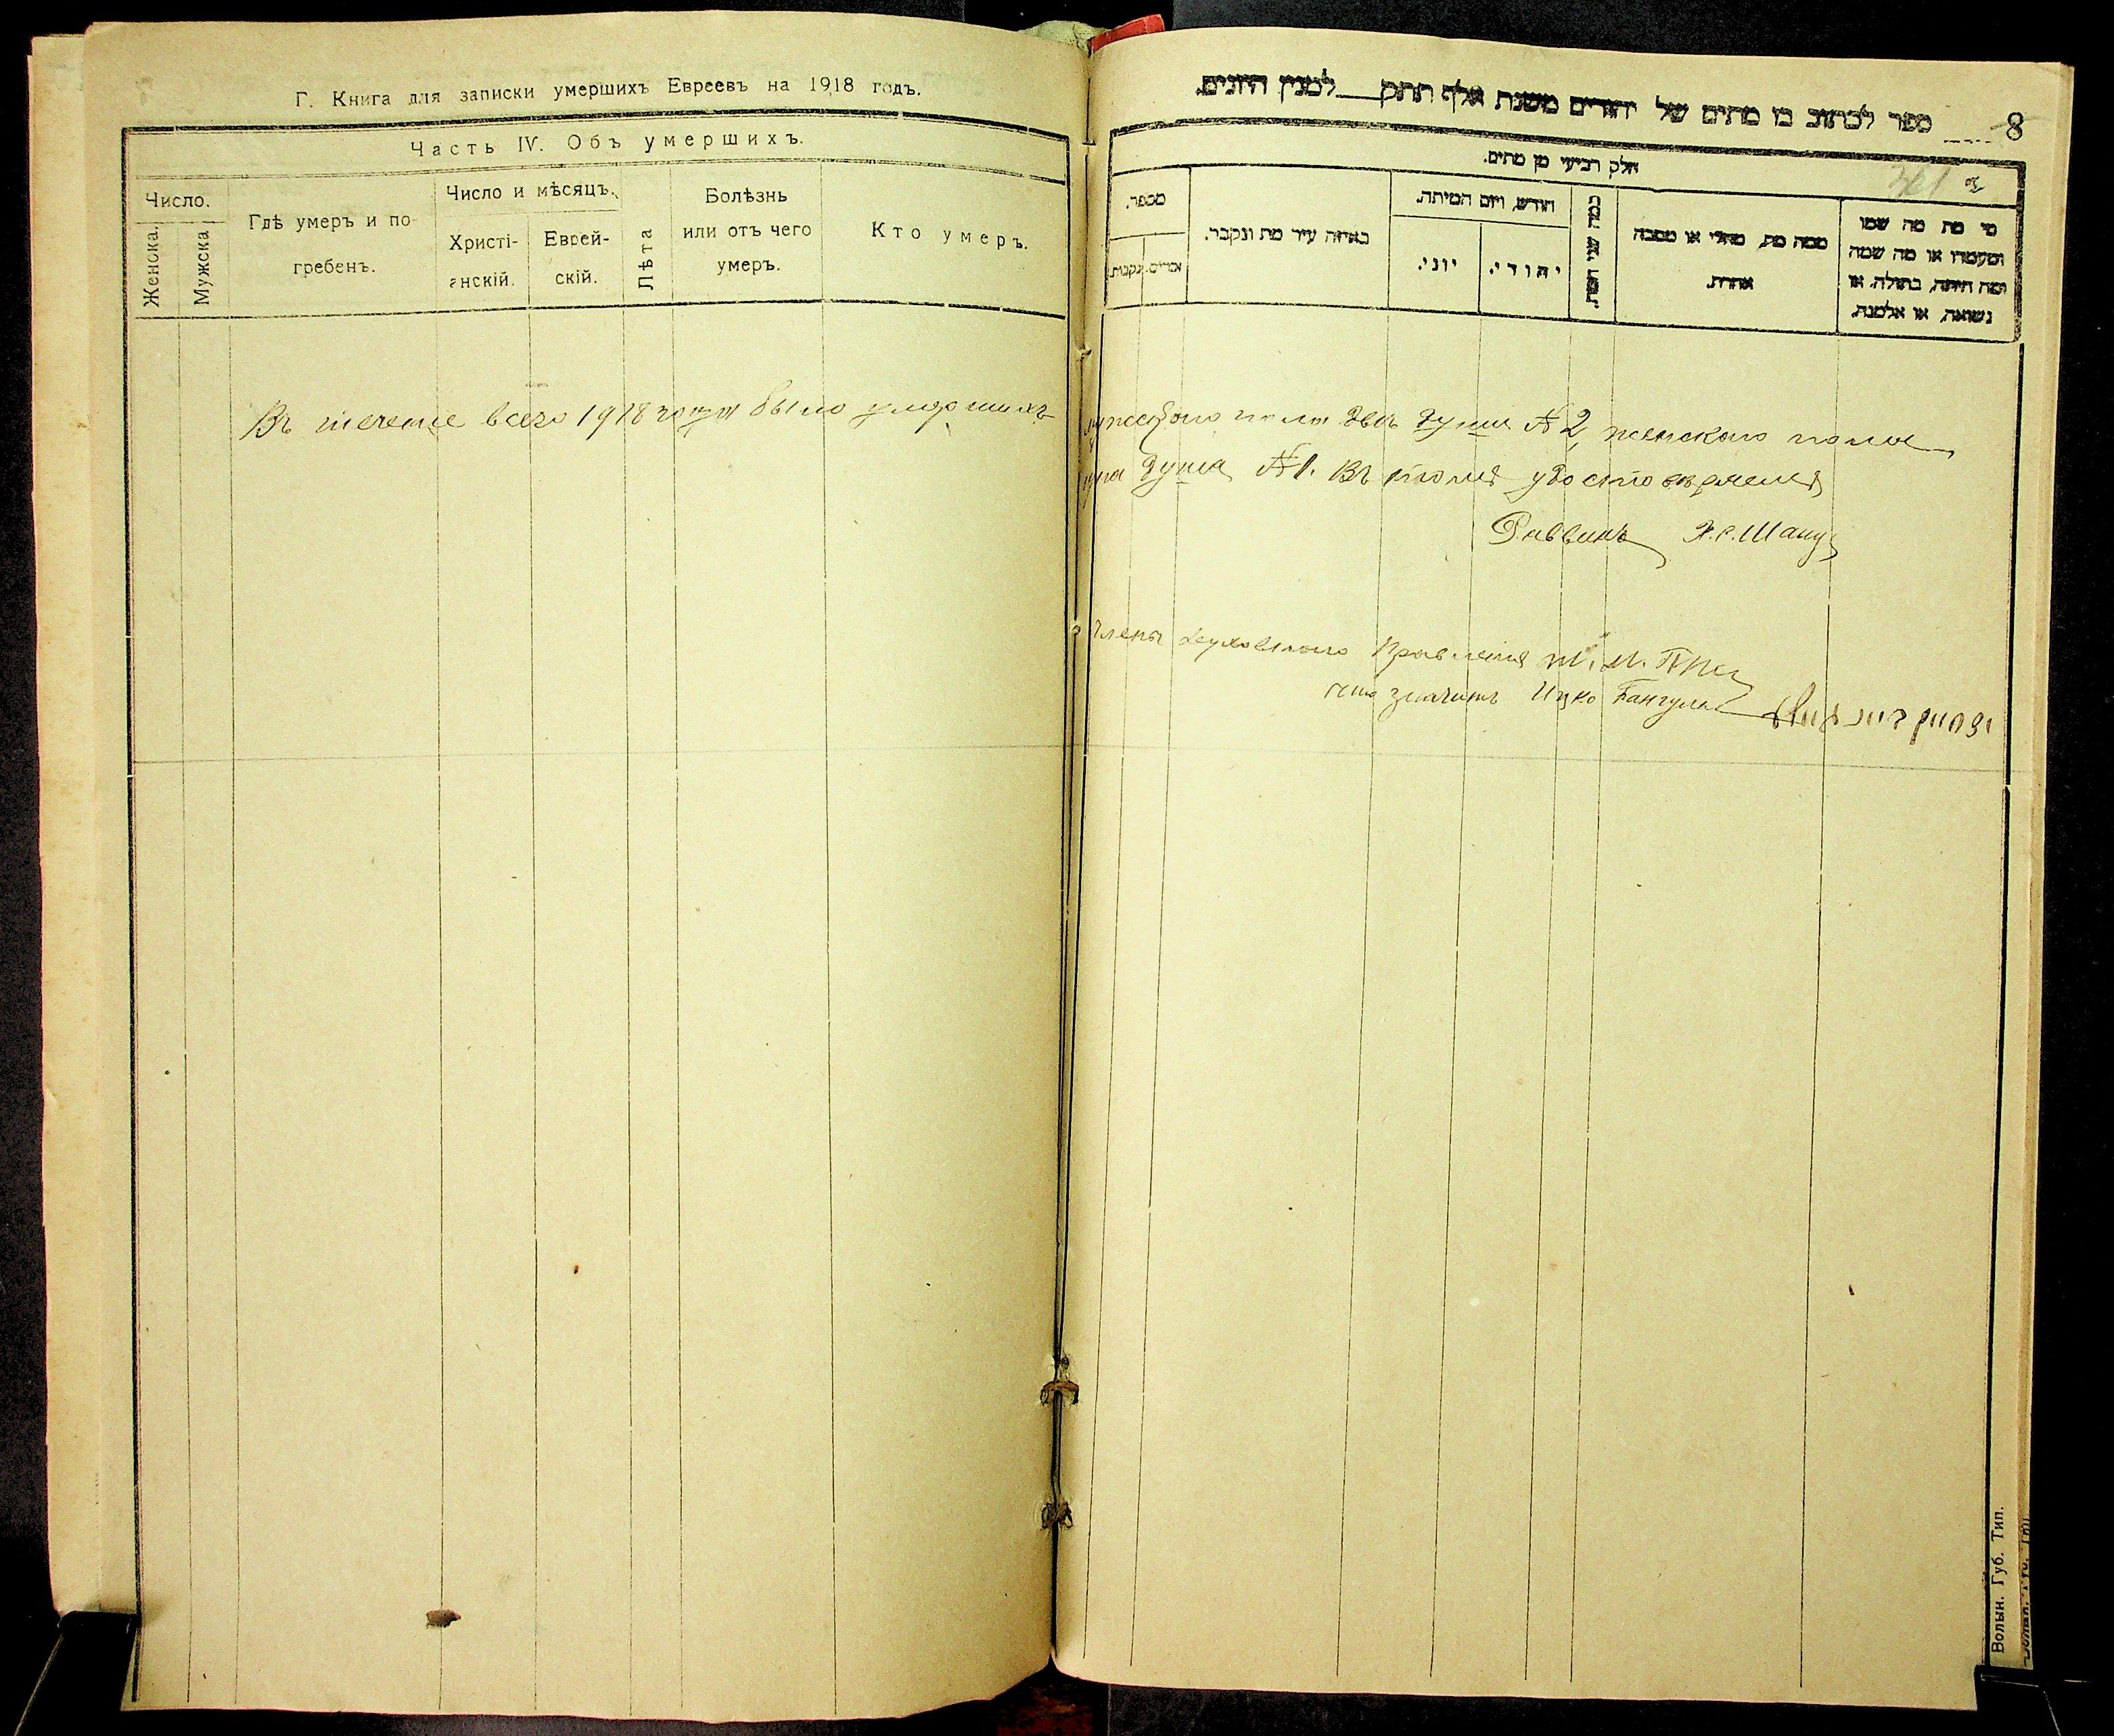 Г. Книга для записки умершихъ Евреевъ на 1918 годъ.
Часть IV. Объ умершихъ.
Число.
Женска.
Мужска
Гдѣ умеръ и по-
гребенъ.
Число и мѣсяцъ.
Христі-
анскій.
Еврей-
скій.
Лѣта
Болѣзнь
или отъ чего
умеръ.
Кто умеръ.
Въ теченіе всего 1918 года было умершихъ
8
ספר לכתוב בו מתים של יהודים משנת אלף תתק למנין היונים.
חלק רביעי מן מתים.
מי מת מה שמו
ומעמדו או מה שמה
ומה היתה, בתולה. או
נשואה, או אלמנה.
ממה מת, מחלי או מסבה
אחרת.
כמה שני
חודש, ויום המיתה.
יהודי.
יוני.
באיזה עיר מת ונקבר.
מספר.
זכרים.
נקבות.
мужескаго пола двѣ души № 2, женскаго пола
душа № 1. Въ томъ удостовѣряемъ
Раввинъ
Члены Духовнаго Правленія
что значитъ Ицко
Волын. Губ. Тип.